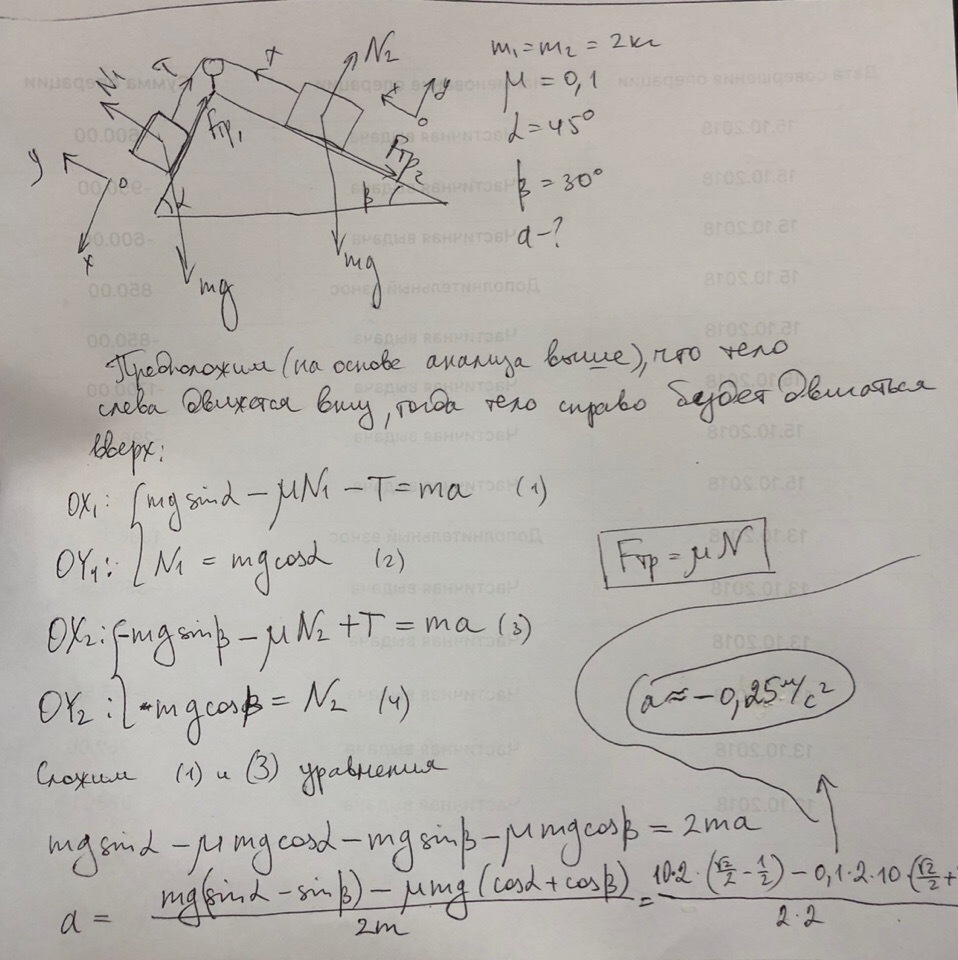 N₁
T
T
N₂
Fтр₁
Fтр₂
y
0
x
x
y
0
α
β
mg
mg
m₁ = m₂ = 2кг
μ = 0,1
α = 45°
β = 30°
a - ?
Предположим (на основе анализа выше), что тело
слева движется вниз, тогда тело справо будет двигаться
вверх:
OX₁: mg sinα - μN₁ - T = ma (1)
OY₁: N₁ = mg cosα (2)
OX₂: -mg sinβ - μN₂ + T = ma (3)
OY₂: mg cosβ = N₂ (4)
Fтр = μN
a ≈ - 0,25 м/с²
Сложим (1) и (3) уравнения
mg sinα - μmg cosα - mg sinβ - μmg cosβ = 2ma
a = mg(sinα - sinβ) - μmg(cosα + cosβ) / 2m = 10·2·(√2/2 - 1/2) - 0,1·2·10·(√2/2 + / 2·2
Дата совершения операции
15.10.2018
Частичная выдача
15.10.2018
Частичная выдача
15.10.2018
Частичная выдача
-600.00
15.10.2018
Дополнительный взнос
850.00
15.10.2018
Частичная выдача
-850.00
15.10.2018
Частичная выдача
15.10.2018
Частичная выдача
13.10.2018
Дополнительный взнос
13.10.2018
Частичная выдача
13.10.2018
Частичная выдача
13.10.2018
Частичная выдача